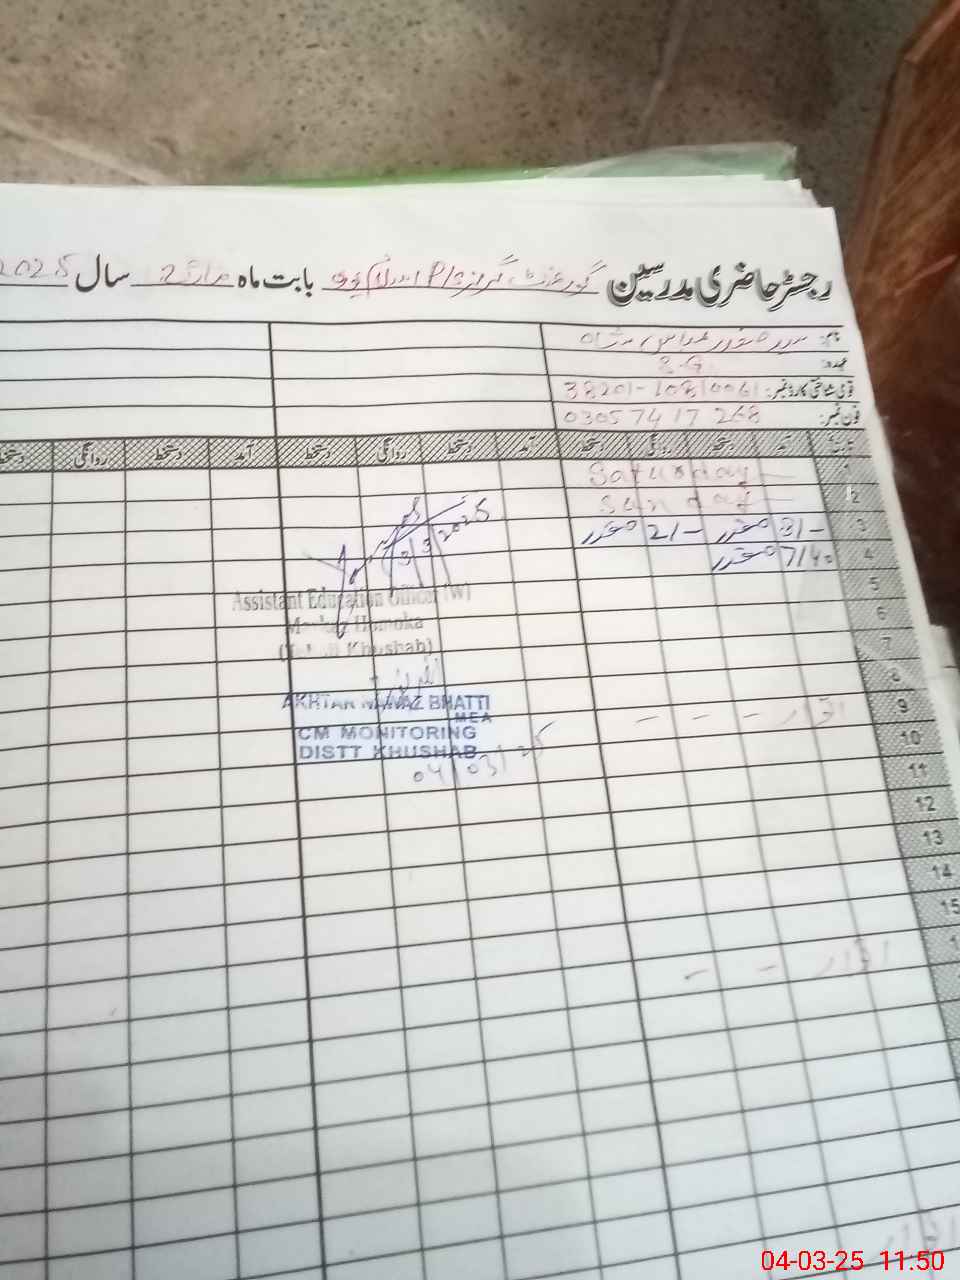 رجسٹر حاضری مدرسین گورنمنٹ گرلز P/S بابت ماہ مارچ سال 2025
نام: سید صفدر عباس شاہ
عہدہ: S.G.
قومی شناختی کارڈ نمبر: 38201-10810061
فون نمبر: 0305 7417 268
تاریخ آمد دستخط روانگی دستخط آمد دستخط روانگی دستخط آمد دستخط روانگی دستخط
1 Saturday
2 Sunday
3 8/- صفدر 2/- صفدر
4 7/40 صفدر
3/3/2025
5
Assistant Education Officer (W)
6
7
8
AKHTAR NAWAZ BHATTI
MEA
9 اتوار - - -
CM MONITORING
10
DISTT KHUSHAB
04/03/25
11
12
13
14
15
اتوار - -
اتوار
04-03-25 11.50